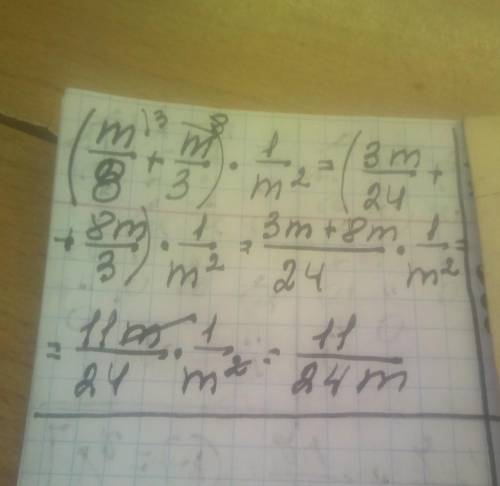 (m/8^)3 + m/3^8) · 1/m² = (3m/24 +
+ 8m/3) · 1/m² = 3m+8m/24 · 1/m² =
= 11m/24 · 1/m² = 11/24m